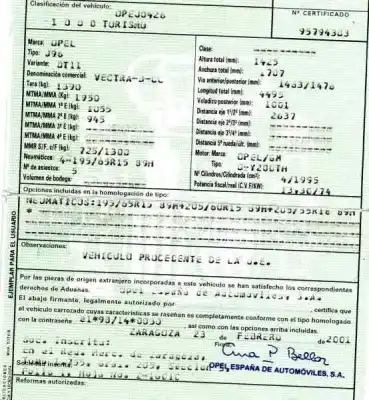 Clasificación del vehículo:
OPEJ0426
-1000 TURISMO
Nº CERTIFICADO
95794383
Marca: OPEL
Tipo: J96
Variante: DT11
Denominación comercial: VECTRA-J-CC
Tara (kg): 1390
MTMA/MMA (Kg): 1950
MTMA/MMA 1º E (kg): 1055
MTMA/MMA 2º E (kg): 945
MTMA/MMA 3º E (kg):
MTMA/MMA 4º E (kg):
MMR S/F. c/F (kg): 725/1300
Neumáticos: 4-195/65R15 89H
Nº de asientos: 5
Volumen de bodega:
Clase:
Altura total (mm): 1425
Anchura total (mm): 1707
Vía anterior/posterior (mm): 1483/1478
Longitud total (mm): 4495
Voladizo posterior (mm): 1001
Distancia eje 1º/2º (mm): 2637
Distancia eje 2º/3º (mm):
Distancia eje 3º/4º (mm):
Distancia 5ª rueda/últ. (mm):
Motor: Marca: OPEL/GM
Tipo:
Nº Cilindros/Cilindrada (cm³): 4/1995
Potencia fiscal/real (C.V.F/KW): 13,30/74
Opciones incluidas en la homologación de tipo:
NEUMATICOS:195/65R15 89H+205/60R15 89H+205/55R16 89H
EJEMPLAR PARA EL USUARIO
Observaciones:
VEHICULO PROCEDENTE DE LA U.E.
Por las piezas de origen extranjero incorporadas a este vehículo se han satisfecho los correspondientes
derechos de Aduanas. Opel España de Automóviles, S.A.
El abajo firmante, legalmente autorizado por , certifica que
el vehículo carrozado cuyas características se reseñan es completamente conforme con el tipo homologado
con la contraseña , así como con las opciones arriba incluidas.
ZARAGOZA 23 de FEBRERO de 2001
Soc. Inscrita:
En el Reg. Merc. de Zaragoza,
OPEL ESPAÑA DE AUTOMÓVILES, S.A.
Reformas autorizadas: